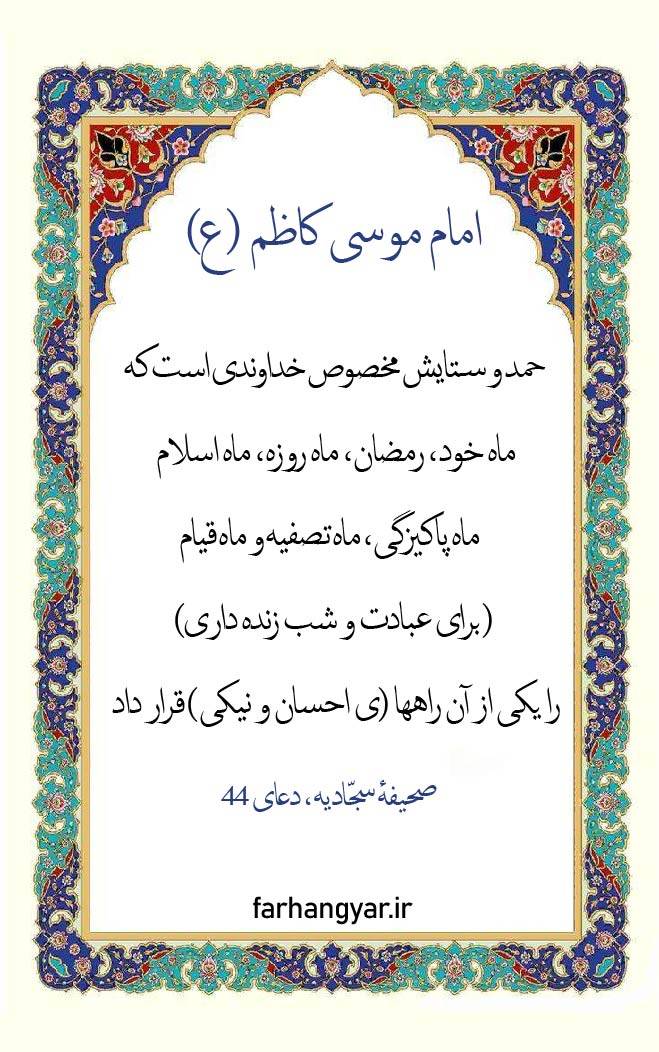 امام موسی کاظم (ع)
حمد و ستایش مخصوص خداوندی است که
ماه خود، رمضان، ماه روزه، ماه اسلام
ماه پاکیزگی، ماه تصفیه و ماه قیام
(برای عبادت و شب زنده داری)
را یکی از آن راهها (ی احسان و نیکی) قرار داد
صحیفهٔ سجّادیه، دعای 44
farhangyar.ir